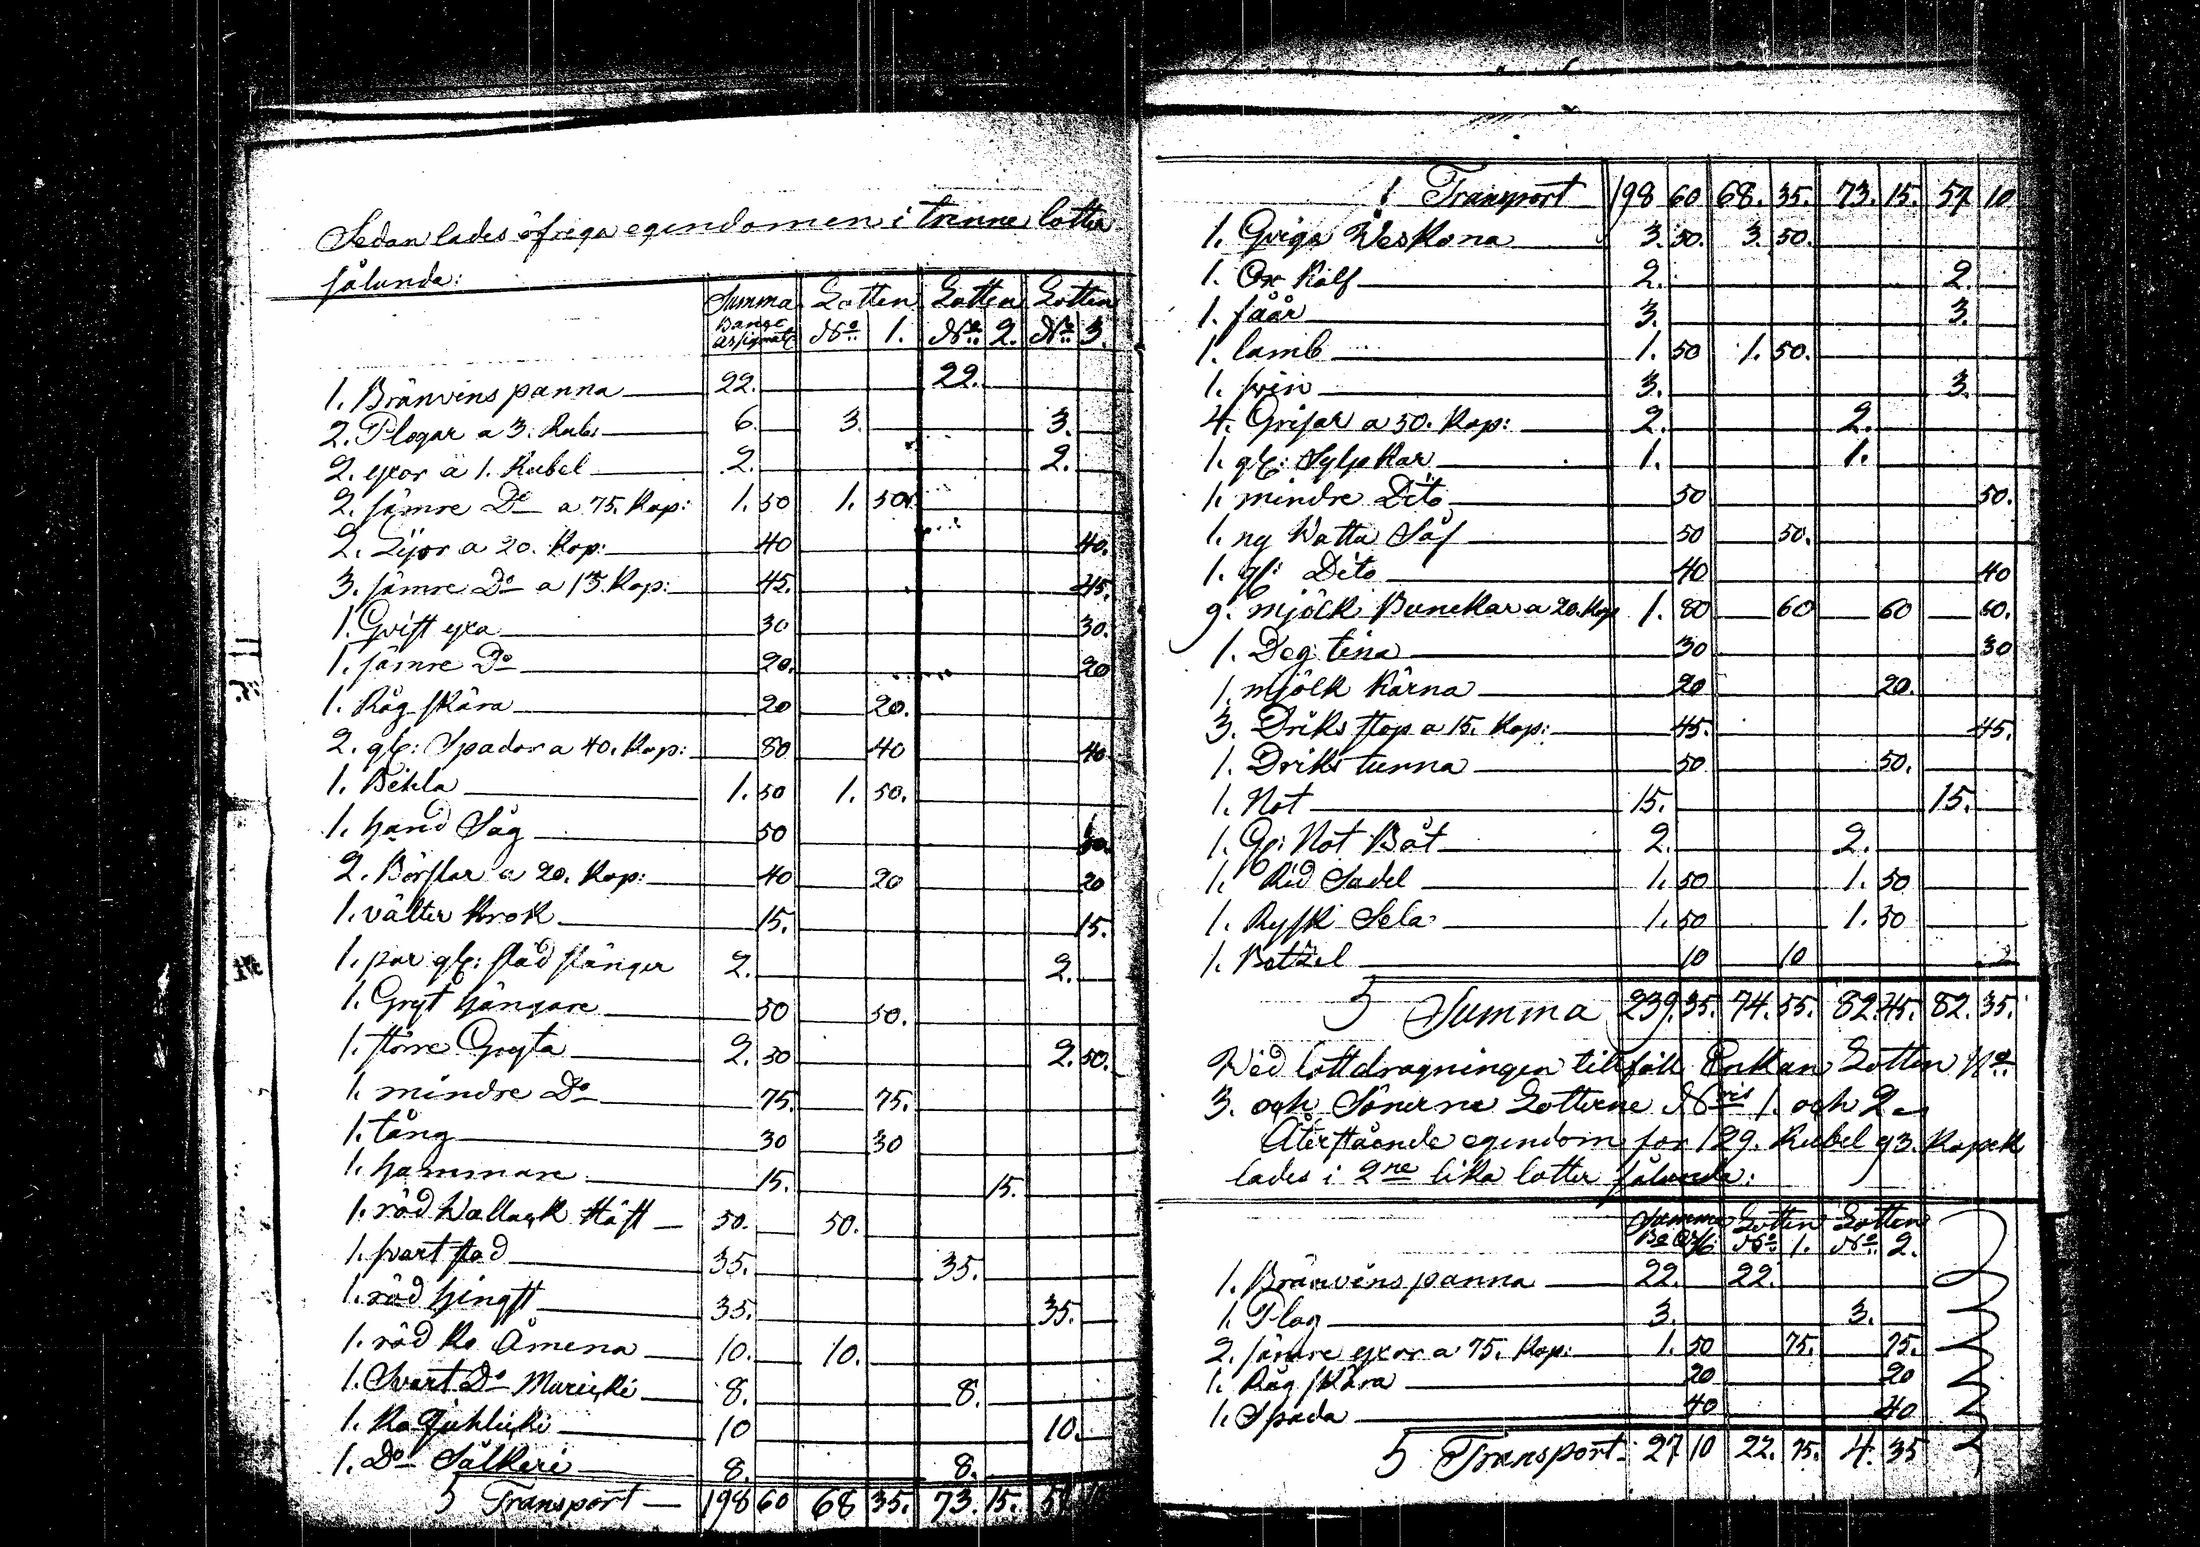 Sedan lades öfriga egendomen i trenne lotter
sålunda:
Summa Lotten Lotten Lotten
Banco Assignat: No 1. No 2. No 3.
1. Bränvins panna 22. 22.
2. Plogar a 3. Rub: 6. 3. 3.
2. yxor a 1. Rubel 2. 2.
2. sämre Do a 75. Kop: 1. 50 1. 50.
2. Lijor a 20. Kop: 40 40.
3. sämre Do a 15. Kop: 45. 45.
1. yxa 30 30.
1. sämre Do 20. 20
1. Råg skära 20 20.
2. gl: Spador a 40. Kop: 80 40 40
1. 1. 50 1. 50.
1. hand Såg 50 50.
2. a 20. Kop: 40 20 20
1. välter krok 15. 15.
1. par gl: stänger 2. 2.
1. Gryt hängare 50 50.
1. större Gryta 2. 50 2. 50.
1. mindre Do 75. 75.
1. tång 30 30
1. hammare 15. 15.
1. röd Wallack Häst 50. 50.
1. svart stod 35. 35.
1. röd hingst 35. 35.
1. röd Ko Åmena 10. 10.
1. Svart Do Muricki 8. 8.
1. Ko 10 10.
1. Do Sälkeri 8. 8.
Transport 198 60 68 35. 73. 15. 57 10
Transport 198 60 68. 35. 73. 15. 57 10
1. Qviga Weskona 3. 50. 3. 50.
1. Ox Kalf 2. 2.
1. fåår 3. 3.
1. lamb 1. 50 1. 50.
1. svin 3. 3.
4. Grisar a 50. Kop: 2. 2.
1. gl: Kar 1. 1.
1. mindre Dito 50 50.
1. ny Watta Så 50 50.
1. gl: Dito 40 40
9. mjölk Bunckar a 20. Kop 1. 80 60 60 60.
1. Deg tina 30 30
1. mjölk kärna 20 20.
3. Driks stop a 15. Kop: 45. 45.
1. Driks tunna 50 50.
1. Not 15. 15.
1. Gl: Not Båt 2. 2.
1. Rid Sadel 1. 50 1. 50
1. Rysk Sela 1. 50 1. 50
1. Betzel 10 10
Summa 239. 35. 74. 55. 82 45. 82. 35.
Wid lottdragningen tillföll Enkan Lotten No
3. och Sönerne Lotterne Nris 1. och 2
Återstående egendom for 129. Rubel 93. Kopek
lades i 2ne lika lotter sålunda:
Summa Lotten Lotten
No 1. No 2.
1. Bränvins panna 22. 22.
1. Plog 3. 3.
2. sämre yxor a 75. Kop: 1. 50 75. 75.
1. Råg skära 20 20
1. Spada 40 40
Transport 27 10 22. 75. 4. 35